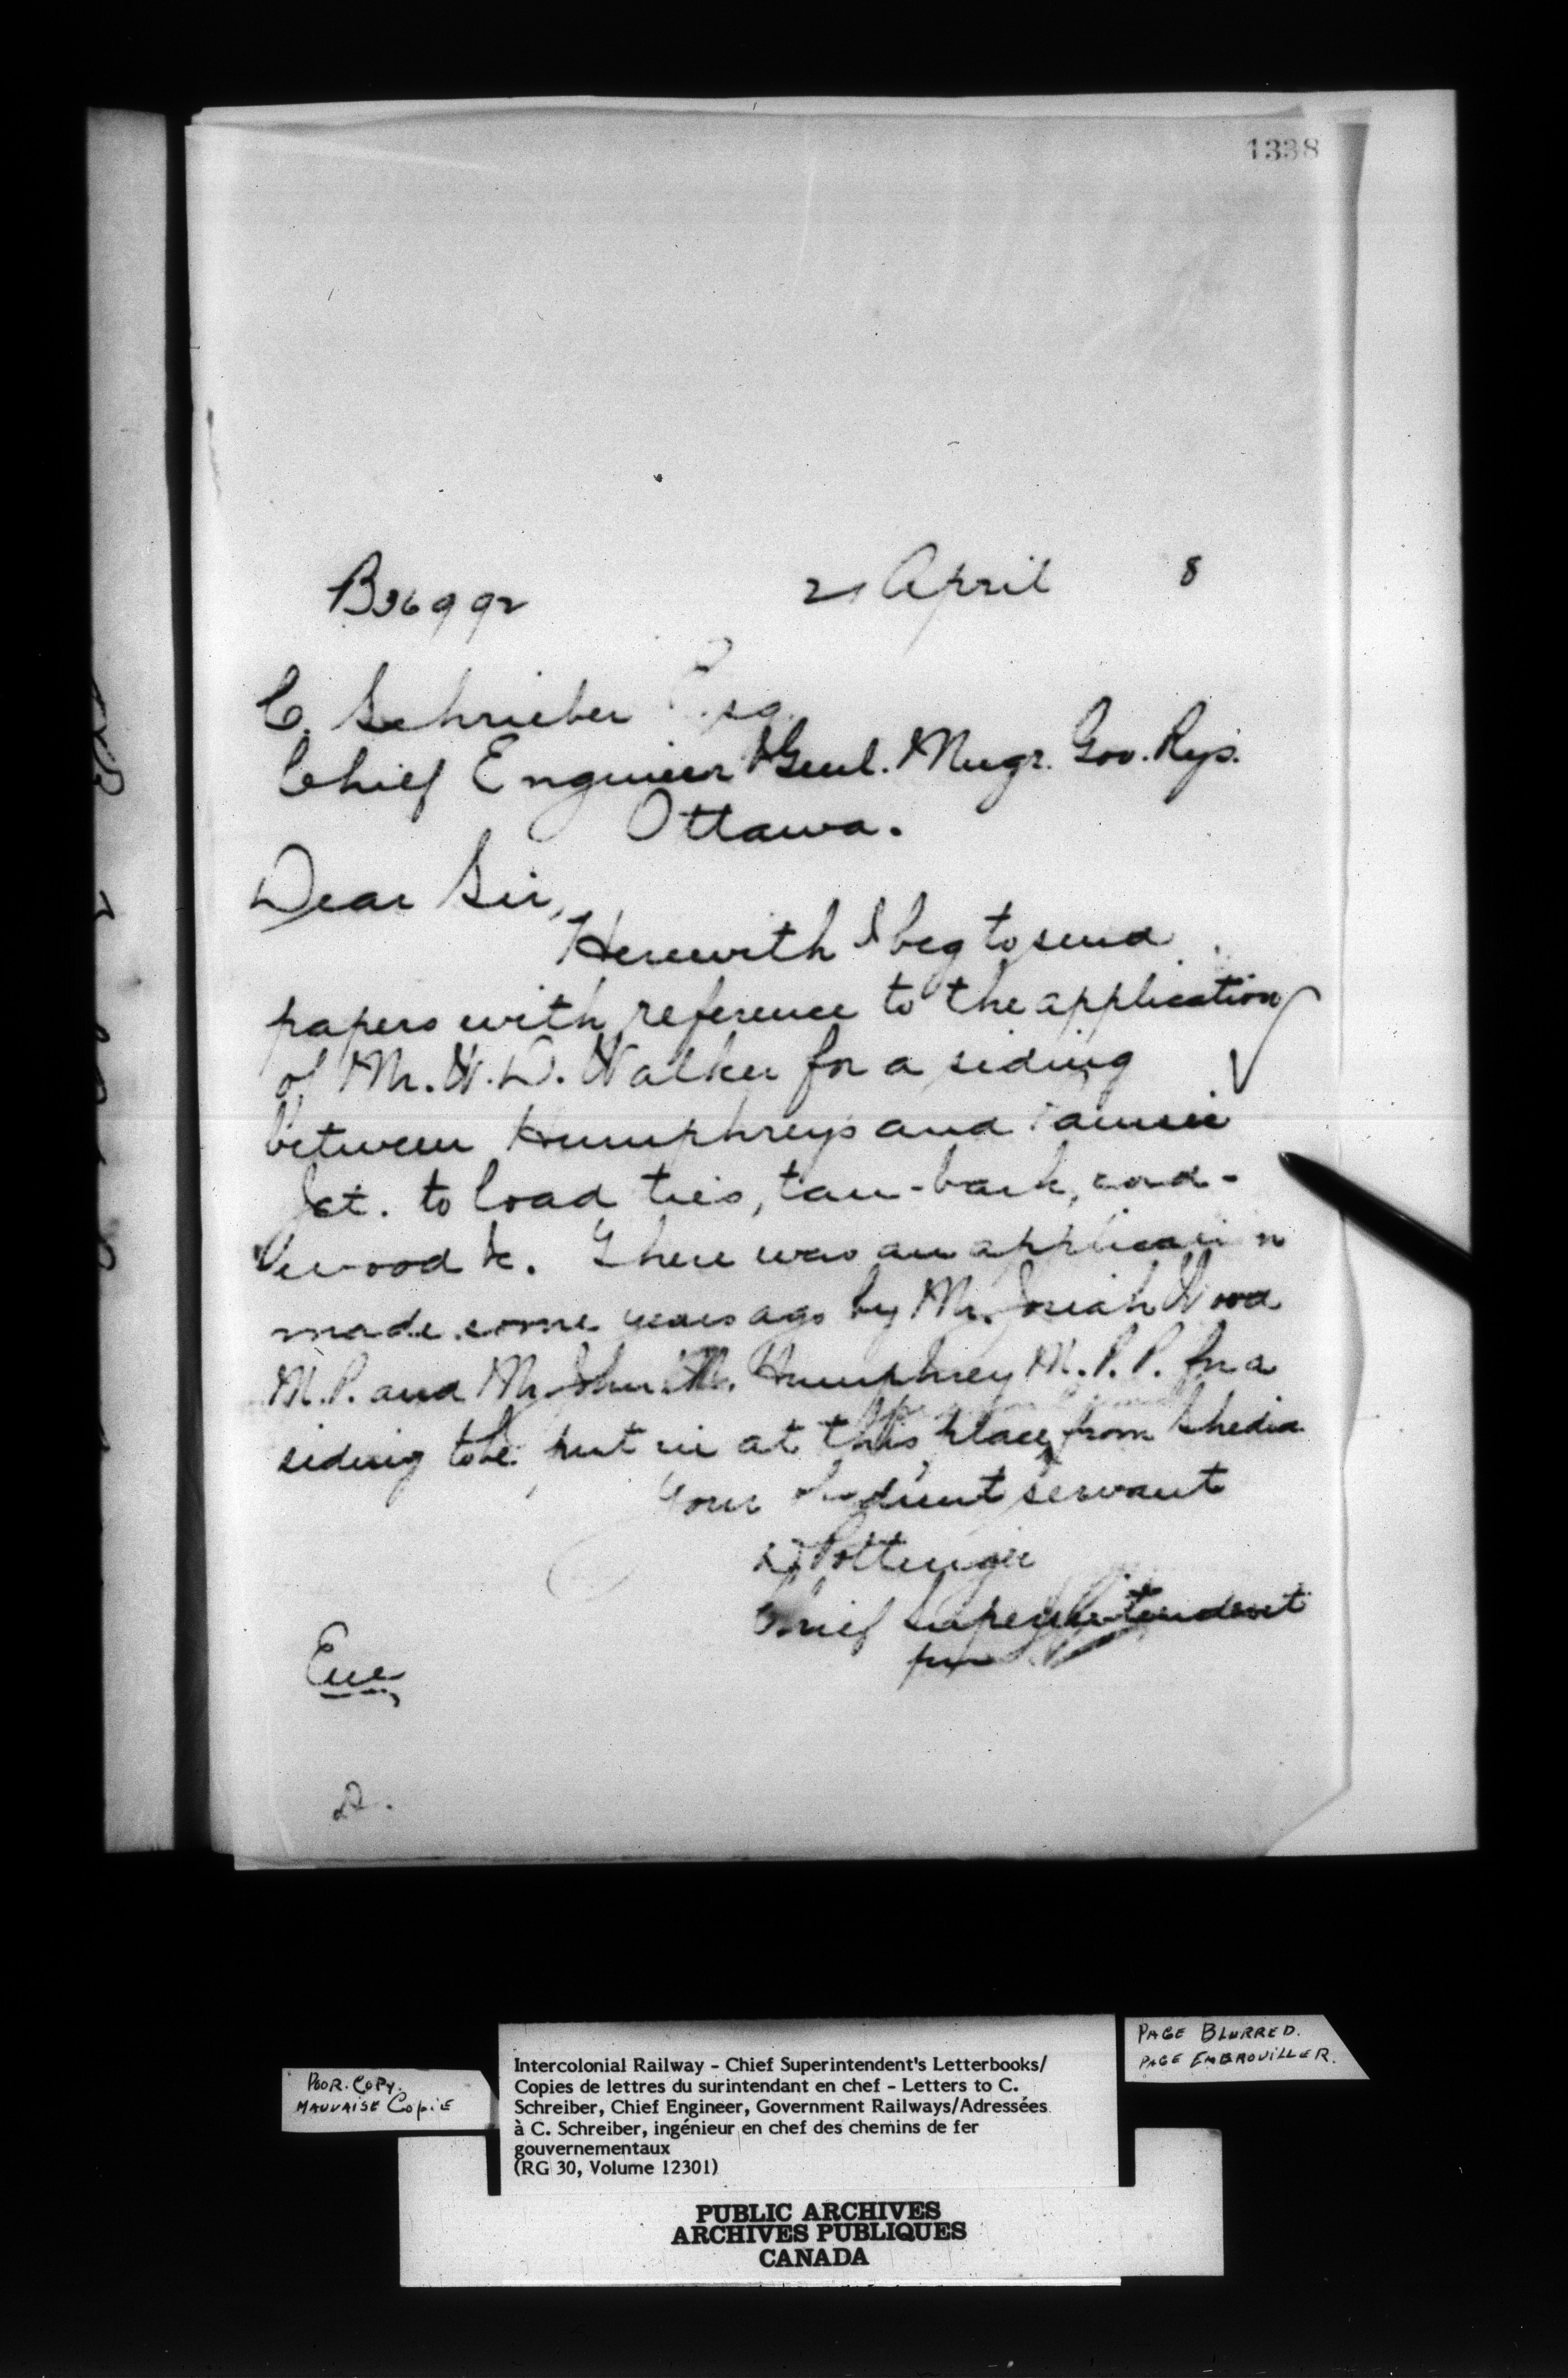 1338
B36992 21 April 8
C. Schrieber Esq.
Chief Engineer & Genl. Mngr. Gov. Rys.
Ottawa.
Dear Sir,
Herewith I beg to send
papers with reference to the application
of Mr. W. D. Walker for a siding
between Humphreys and
Jct. to load ties, tan-bark, cord-
wood &c. There was an application
made some years ago by Mr. Josiah Wood
M.P. and Mr. John Humphrey M.P.P. for a
siding to be put in at this place from Shediac
Your obedient servant
D Pottinger
Chief Superintendent
per
Enc
D.
POOR COPY.
MAUVAISE COPIE
Intercolonial Railway - Chief Superintendent's Letterbooks/
Copies de lettres du surintendant en chef - Letters to C.
Schreiber, Chief Engineer, Government Railways/Adressées
à C. Schreiber, ingénieur en chef des chemins de fer
gouvernementaux
(RG 30, Volume 12301)
PAGE BLURRED.
PAGE EMBROUILLER.
PUBLIC ARCHIVES
ARCHIVES PUBLIQUES
CANADA